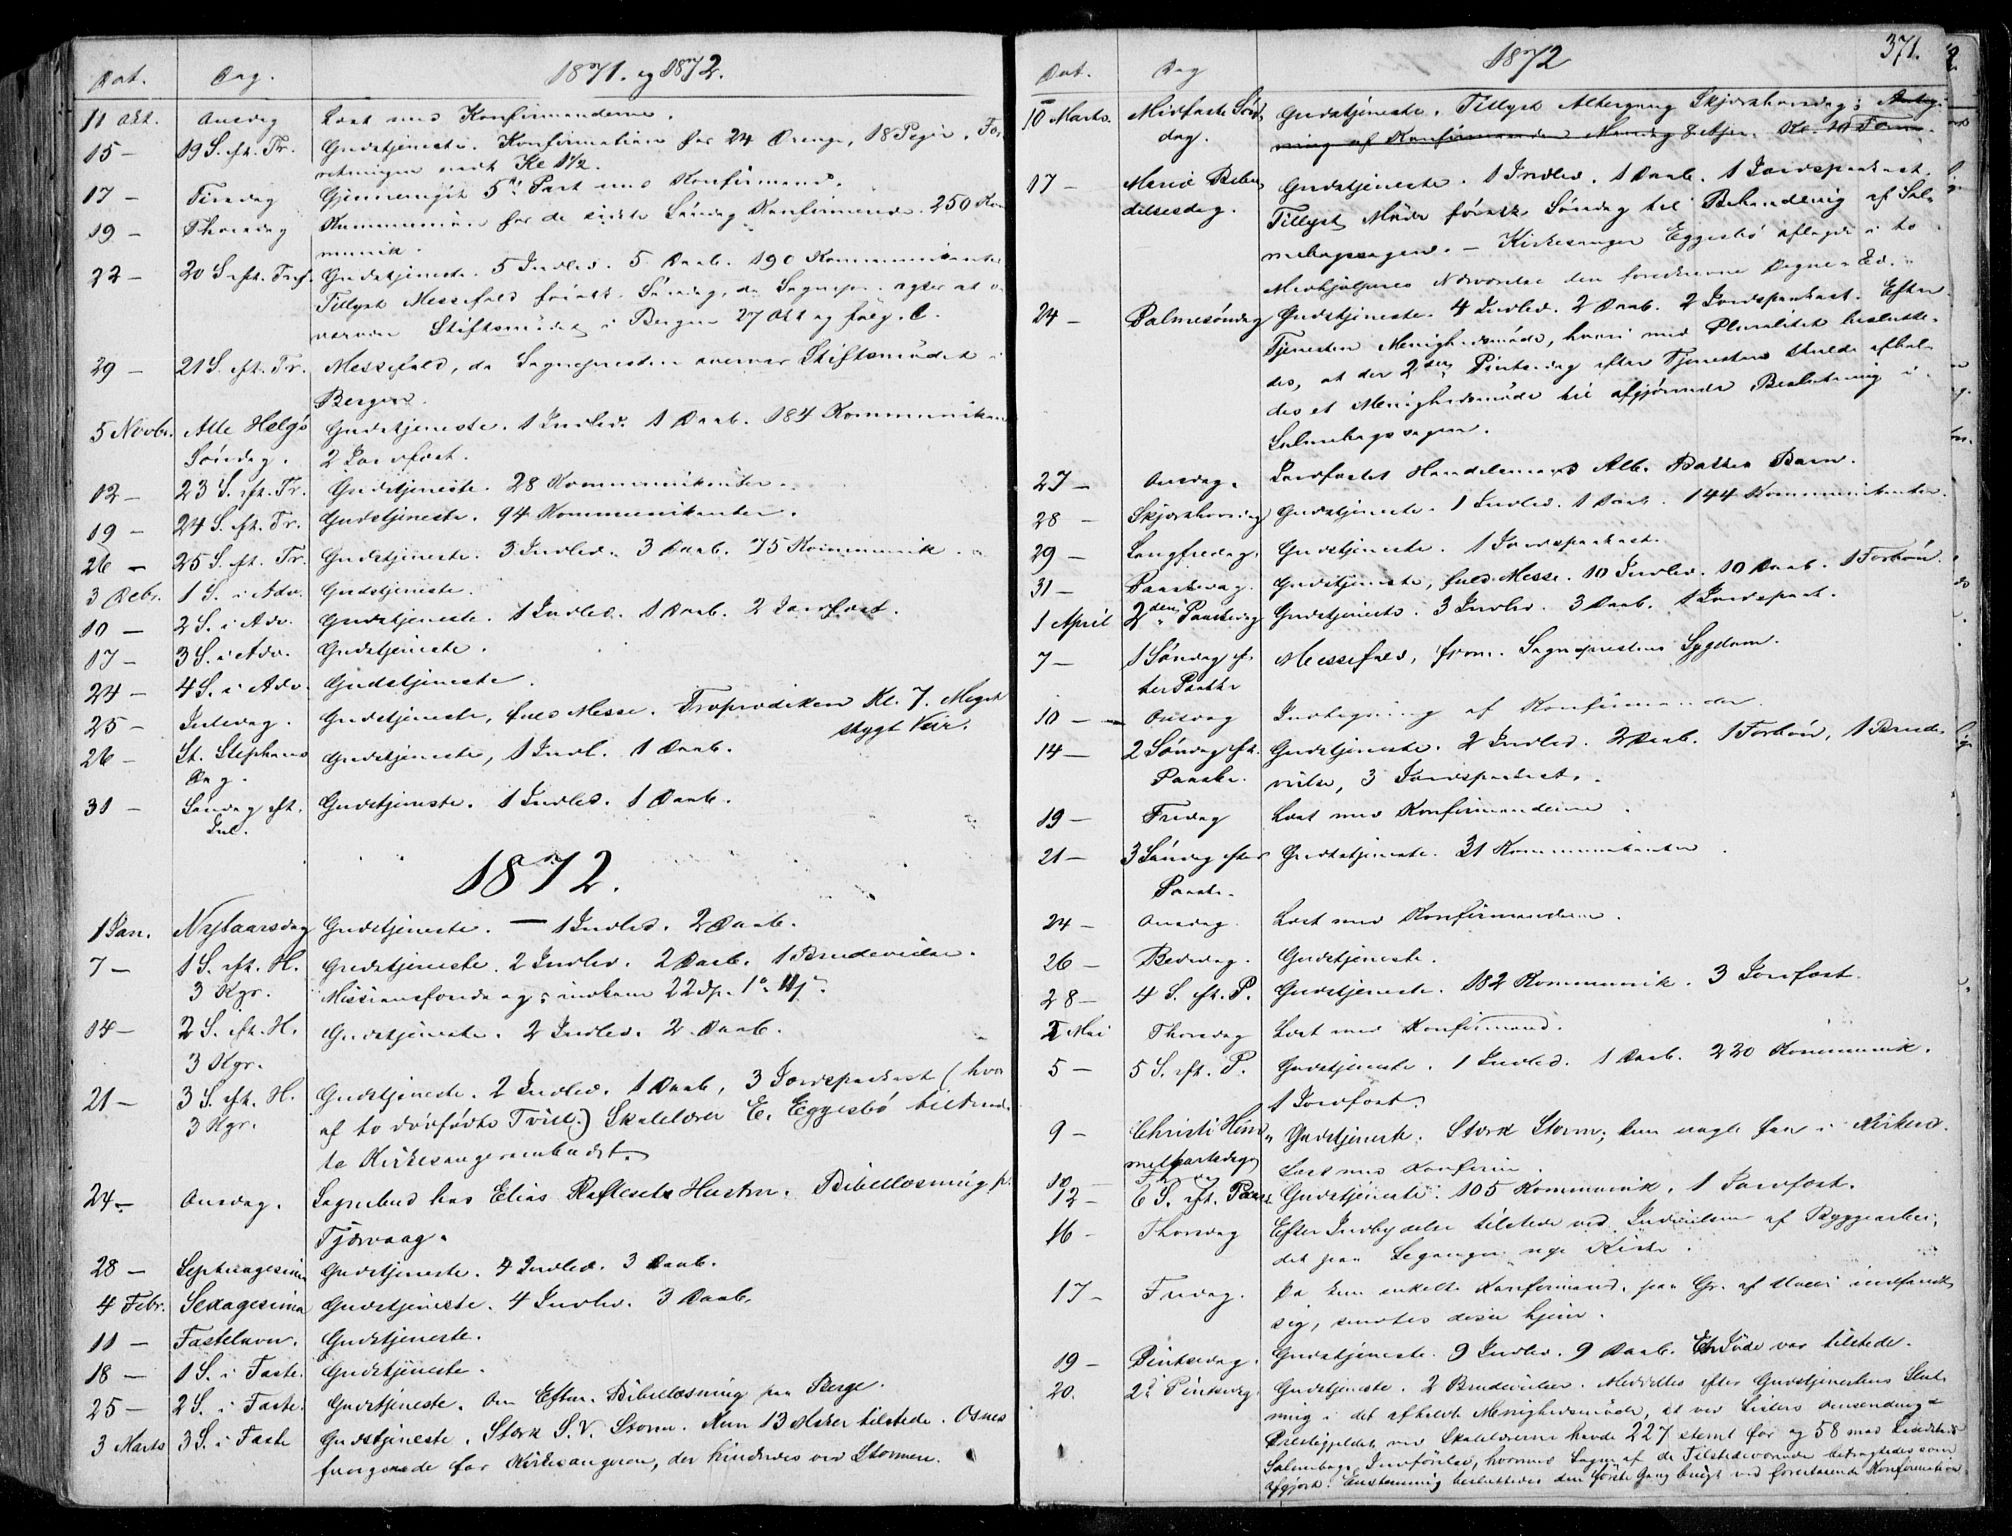 Dat. Dag. 1871. og 1872.
11 Okt. Onsdag Læst med Konfirmanderne.
15 — 19 S. eft. Tr. Gudstjeneste. Konfirmation for 24 Drenge, 18 Piger. For-
retningen endt Kl 1½.
17 — Tirsdag Gjennemgik 5te Part med Konfirmand.
19 — Thorsdag Kommunion for de sidste Søndag Konfirmerede. 250 Kom
munik.
22 — 20 S. eft. Tref. Gudstjeneste. 5 Indled. 5 Daab. 190 Kommunikanter
Tillyst Messefald førstk. Søndag, da Sognepr. agter at o-
vervære Stiftsmødet i Bergen 27 Okt og følg. D.
29 — 21 S. eft. Tr. Messefald, da Sognepresten overvar Stiftsmødet i
Bergen.
5 Novbr. Alle Helgs Gudstjeneste. 1 Indled. 1 Daab. 184 Kommunikan
Søndag. 2 Jordfæst.
12 — 23 S. eft. Tr. Gudstjeneste. 28 Kommunikanter.
19 — 24 S. eft. Tr. Gudstjeneste. 94 Kommunikanter.
26 — 25 S. eft. Tr. Gudstjeneste. 3 Indled. 3 Daab. 75 Kommunik.
3 Debr. 1 S. i Adv. Gudstjeneste.
10 — 2 S. i Adv. Gudstjeneste. 1 Indled. 1 Daab. 2 Jordfæst.
17 — 3 S. i Adv. Gudstjeneste.
24 — 4 S. i Adv. Gudstjeneste.
25 — Juledag. Gudstjeneste, fuld Messe. Froprædiken Kl. 7. Meget
stygt Veir.
26 — St. Stephans Gudstjeneste, 1 Indl. 1 Daab.
Dag.
31 — Søndag eft. Gudstjeneste. 1 Indled. 1 Daab.
Jul.
1872.
1 Jan. Nytaarsdag Gudstjeneste. — 1 Indled. 2 Daab.
7 — 1 S. eft. H. Gudstjeneste. 2 Indled. 2 Daab. 1 Brudevielse.
3 Kgr. Missionsforedrag; indkom 22 dp.
14 — 2 S. eft. H. Gudstjeneste. 2 Indled. 2 Daab.
3 Kgr.
21 — 3 S. eft. H. Gudstjeneste. 2 Indled. 1 Daab, 3 Jordspaakast (hvor
3 Kgr. af to dødfødte Tvill.) Skolelærer E. Eggesbø tiltraad-
te Kirkesangerembedet.
24 — Onsdag. Sognebud hos Elias Hustru. Bibellæsning p.
Tjørvaag.
28 — Septuagesima Gudstjeneste. 4 Indled. 3 Daab.
4 Febr. Sexagesima Gudstjeneste. 4 Indled. 3 Daab.
11 — Fastelavn. Gudstjeneste.
18 — 1 S. i Faste. Gudstjeneste.
25 — 2 S. i Faste. Gudstjeneste. Om Efterm. Bibellæsning paa Berge.
3 Marts 3 S. i Faste Gudstjeneste. Stærk S. V. Storm. Kun 13 tilstede. Osnes
fungerede for Kirkesangeren, der hindredes ved Stormen.
Dat. Dag 1872 371.
10 Marts. Midfaste Søn- Gudstjeneste. Tillyst Altergang Skjærthorsdag; Antag-
dag. ning af Konfirmander Mandag 8 Apr. Kl. 10 Form.
17 — Mariæ Bebu- Gudstjeneste. 1 Indled. 1 Daab. 1 Jordspaakast.
delsesdag. Tillyst Møde førstk. Søndag til Behandling af Sal-
mebogssagen. — Kirkesanger Eggesbø aflagde i to
Medhjælperes Nærværelse den foreskrevne Degne-Ed.
24 — Palmesøndag Gudstjeneste. 4 Indled. 2 Daab. 2 Jordspaakast. Efter
Tjenesten Menighedsmøde, hvori med Pluralitet beslutte-
des, at der 2den Pintsedag efter Tjenesten skulde afhol-
des et Menighedsmøde til afgjørende Beslutning i
Salmebogssagen.
27 — Onsdag. Jordfæstet Handelsmand Alb. Barn.
28 — Skjærthorsdag Gudstjeneste. 1 Indled. 1 Daab. 144 Kommunikanter.
29 — Langfredag. Gudstjeneste. 1 Jordspaakast.
31 — Paaskedag. Gudstjeneste, fuld Messe. 10 Indled. 10 Daab. 1 Forbøn.
1 April 2den Paaskedag Gudstjeneste. 3 Indled. 3 Daab. 1 Jordspaak.
7 — 1 Søndag ef- Messefald, form. Sognepræstens Sygdom.
ter Paaske
10 — Onsdag Indtegning af Konfirmander.
14 — 2 Søndag eft. Gudstjeneste. 2 Indled. 2 Daab. 1 Forbøn, 1 Brude-
Paaske. vielse, 3 Jordspaakast.
19 — Fredag Læst med Konfirmanderne.
21 — 3 Søndag efter Gudstjeneste. 31 Kommunikanter.
Paaske.
24 — Onsdag. Læst med Konfirmanderne.
26 — Bededag. Gudstjeneste.
28 — 4 S. eft. P. Gudstjeneste. 182 Kommunik. 3 Jordfæst.
2 Mai Thorsdag Læst med Konfirmand.
5 — 5 S. eft. P. Gudstjeneste. 1 Indled. 1 Daab. 220 Kommunik.
1 Jordfæst.
9 — Christi Him- Gudstjeneste. Stærk Storm; kun nogle faa i Kirken.
melfartsdag
10 — Læst med Konfirm.
12 — 6 S. eft. Paask. Gudstjeneste. 105 Kommunik. 1 Jordfæst.
16 — Thorsdag Efter Indbydelse tilstede ved Indvielsen af Byggearbei-
det paa nye Kirke.
17 — Fredag. Da kun enkelte Konfirmand. paa Gr. af Uveir indfandt
sig, sendtes disse hjem.
19 — Pintsedag. Gudstjeneste. 9 Indled. 9 Daab. En Jøde var tilstede.
20. 2d Pintsedag. Gudstjeneste. 2 Brudevielser. Meddeltes efter Gudstjenestens Slut-
ning i det afholdte Menighedsmøde, at ved Listers Omsendning
Præstegjeldet ved Skolelærerne havde 227 stemt for og 58 mod Landstads
Salmebogs Indførelse, hvormed Sagen af de Tilstedeværende betragtedes som
afgjort. Enstemmig besluttedes den første Gang brugt ved forestaaende Konfirmation